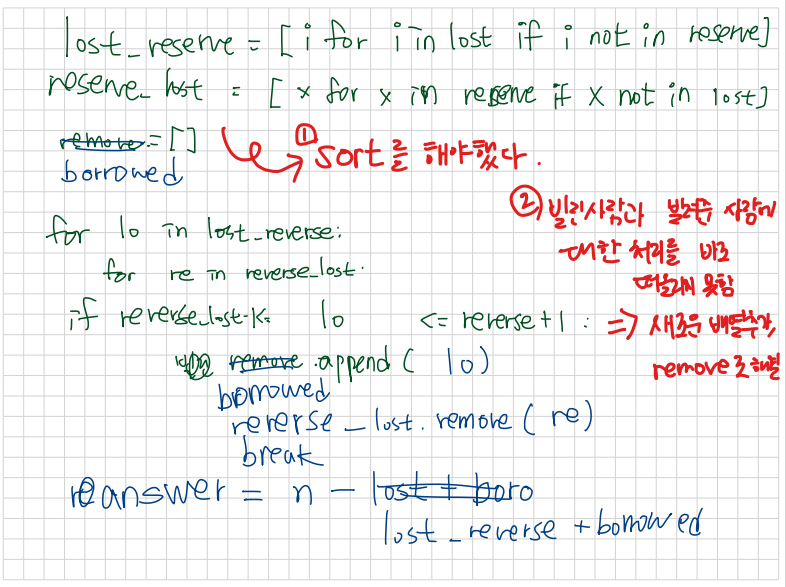 lost_reserve = [ i for i in lost if i not in reserve]
reserve_lost = [ x for x in reserve if x not in lost]
remove = []
borrowed
① sort를 해야했다.
② 빌린사람과 빌려준 사람에
대한 처리를 바로
떠올리지 못함
=> 새로운 배열추가,
remove로 해결
for lo in lost_reverse:
for re in reverse_lost:
if reverse_lost-1<= lo <= reverse+1 :
remove.append( lo)
borrowed
rererse_lost. remove ( re)
break
answer = n - lost + boro
lost_reverse + borrowed